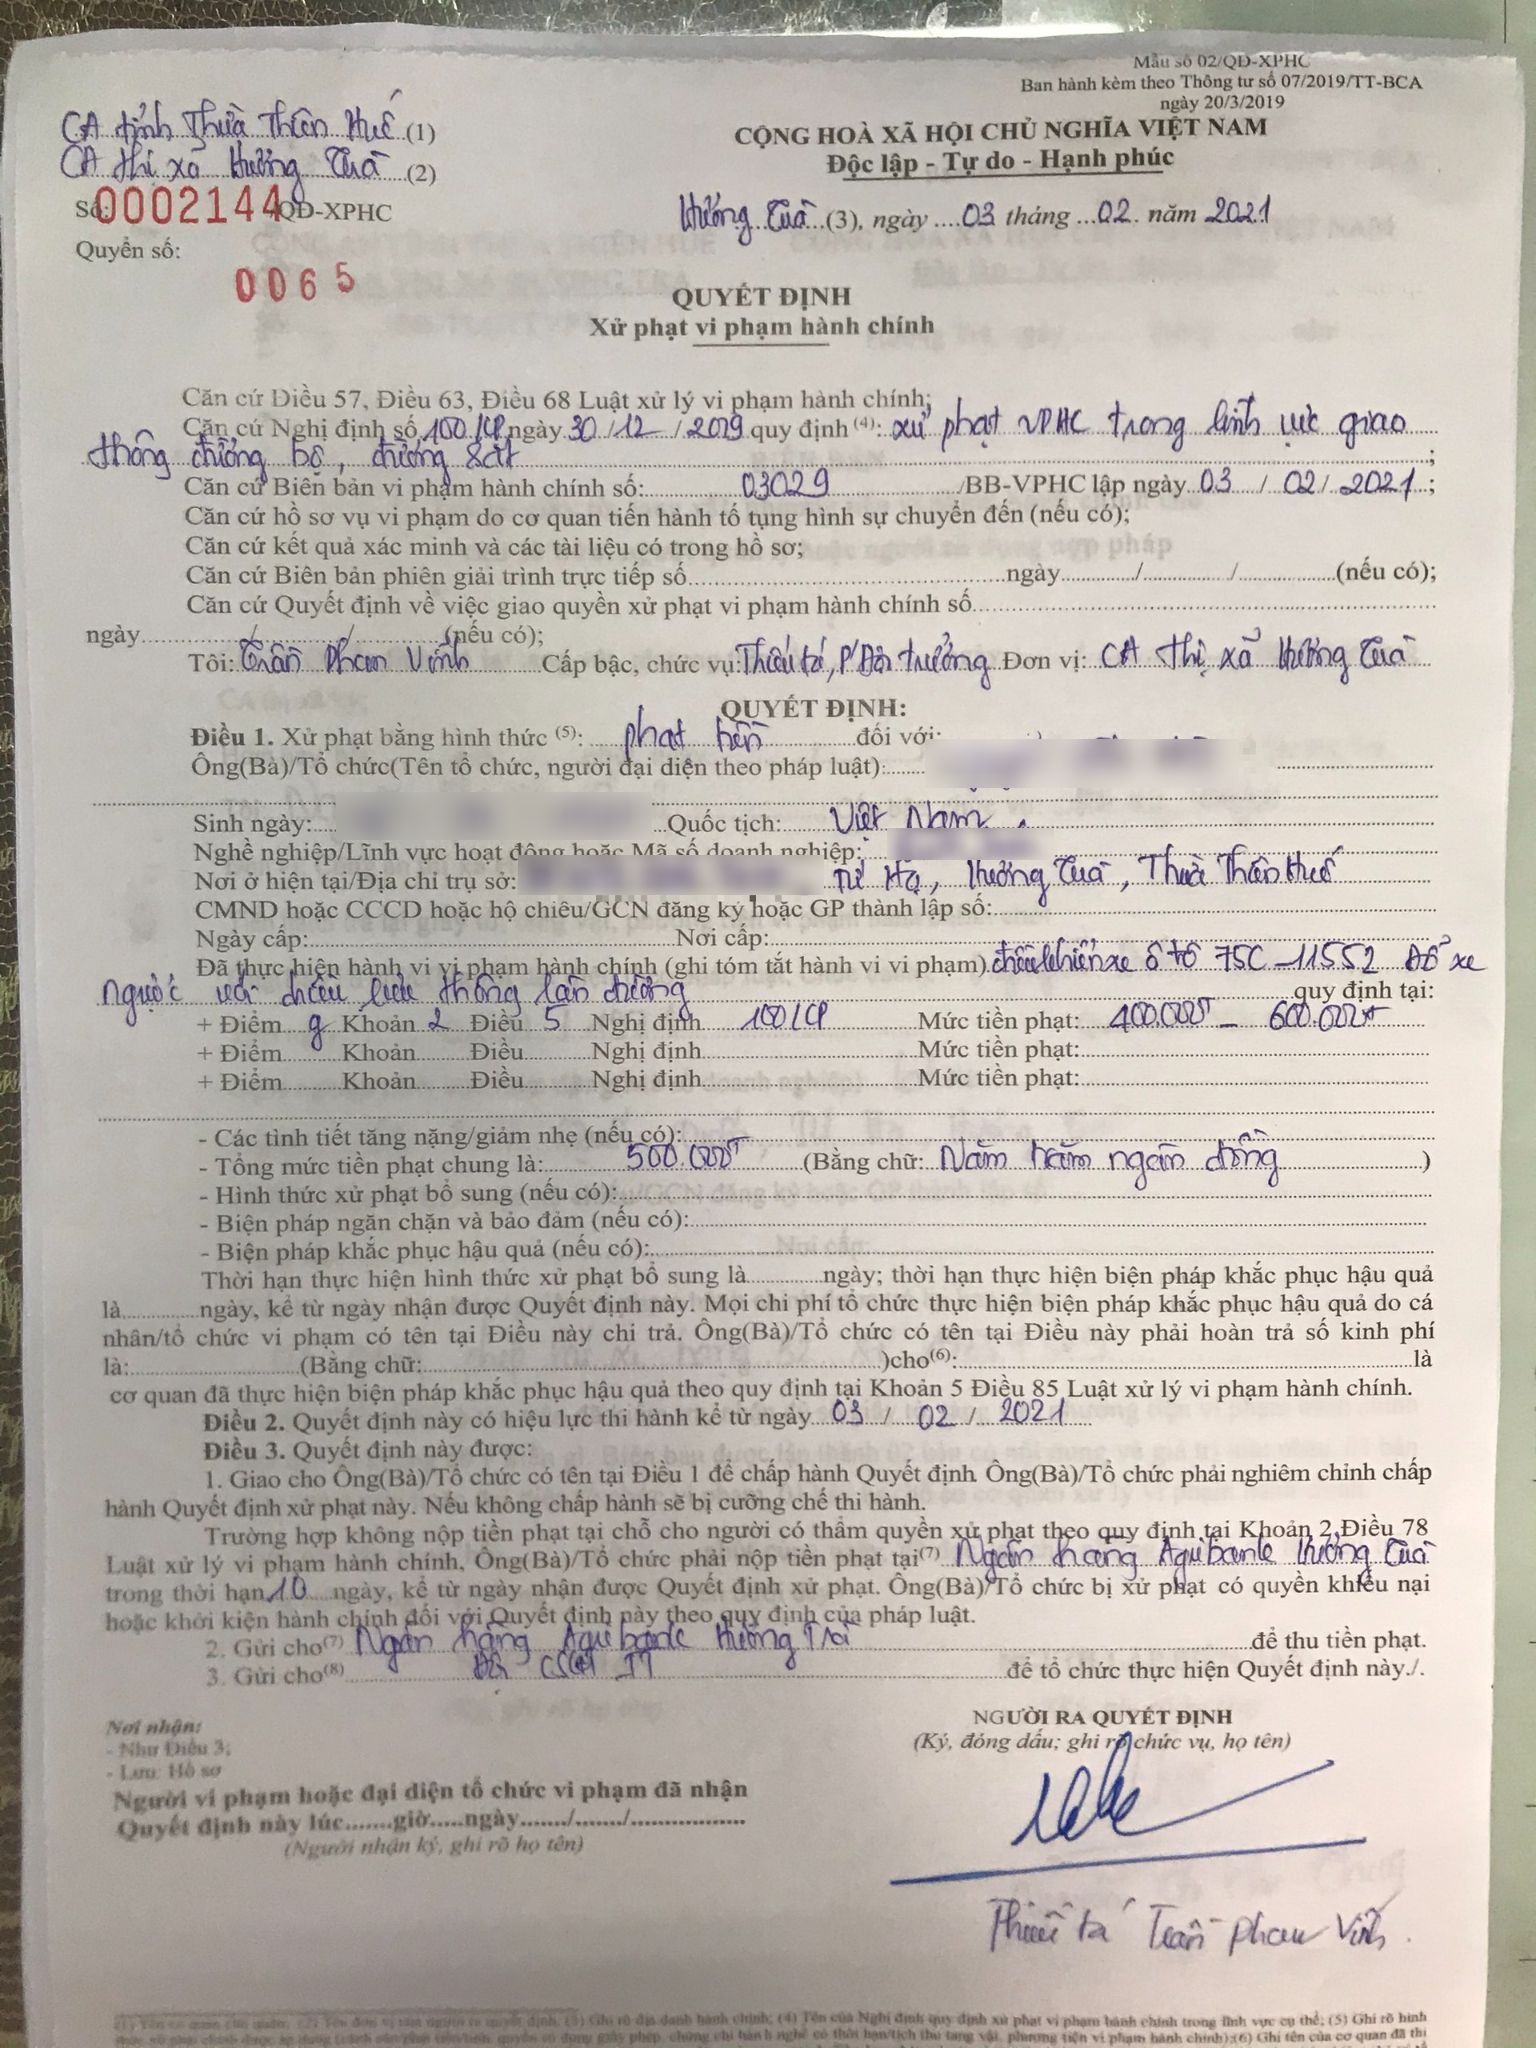 Mẫu số 02/QĐ-XPHC
Ban hành kèm theo Thông tư số 07/2019/TT-BCA
ngày 20/3/2019
CA tỉnh Thừa Thiên Huế (1)
CA thị xã Hương Trà (2)
Số: 0002144 QĐ-XPHC
Quyển số:
0065
CỘNG HOÀ XÃ HỘI CHỦ NGHĨA VIỆT NAM
Độc lập - Tự do - Hạnh phúc
Hương Trà (3), ngày 03 tháng 02 năm 2021
QUYẾT ĐỊNH
Xử phạt vi phạm hành chính
Căn cứ Điều 57, Điều 63, Điều 68 Luật xử lý vi phạm hành chính;
Căn cứ Nghị định số 100/CP ngày 30/12/2019 quy định (4): xử phạt VPHC trong lĩnh vực giao
thông đường bộ, đường sắt;
Căn cứ Biên bản vi phạm hành chính số: 03029 /BB-VPHC lập ngày 03/02/2021;
Căn cứ hồ sơ vụ vi phạm do cơ quan tiến hành tố tụng hình sự chuyển đến (nếu có);
Căn cứ kết quả xác minh và các tài liệu có trong hồ sơ;
Căn cứ Biên bản phiên giải trình trực tiếp số ngày / / (nếu có);
Căn cứ Quyết định về việc giao quyền xử phạt vi phạm hành chính số
ngày / / (nếu có);
Tôi: Trần Phan Vĩnh Cấp bậc, chức vụ: Thiếu tá, P'Đội trưởng Đơn vị: CA thị xã Hương Trà
QUYẾT ĐỊNH:
Điều 1. Xử phạt bằng hình thức (5): phạt tiền đối với:
Ông(Bà)/Tổ chức(Tên tổ chức, người đại diện theo pháp luật):
Sinh ngày: Quốc tịch: Việt Nam.
Nghề nghiệp/Lĩnh vực hoạt động hoặc Mã số doanh nghiệp:
Nơi ở hiện tại/Địa chỉ trụ sở: Tứ Hạ, Hương Trà, Thừa Thiên Huế
CMND hoặc CCCD hoặc hộ chiếu/GCN đăng ký hoặc GP thành lập số:
Ngày cấp: Nơi cấp:
Đã thực hiện hành vi vi phạm hành chính (ghi tóm tắt hành vi vi phạm) điều khiển xe ô tô 75C-11552 Đỗ xe
ngược với chiều lưu thông làn đường quy định tại:
+ Điểm g Khoản 2 Điều 5 Nghị định 100/CP Mức tiền phạt: 400.000đ - 600.000đ
+ Điểm Khoản Điều Nghị định Mức tiền phạt:
+ Điểm Khoản Điều Nghị định Mức tiền phạt:
- Các tình tiết tăng nặng/giảm nhẹ (nếu có):
- Tổng mức tiền phạt chung là: 500.000đ (Bằng chữ: Năm trăm ngàn đồng)
- Hình thức xử phạt bổ sung (nếu có):
- Biện pháp ngăn chặn và bảo đảm (nếu có):
- Biện pháp khắc phục hậu quả (nếu có):
Thời hạn thực hiện hình thức xử phạt bổ sung là ngày; thời hạn thực hiện biện pháp khắc phục hậu quả
là ngày, kể từ ngày nhận được Quyết định này. Mọi chi phí tổ chức thực hiện biện pháp khắc phục hậu quả do cá
nhân/tổ chức vi phạm có tên tại Điều này chi trả. Ông(Bà)/Tổ chức có tên tại Điều này phải hoàn trả số kinh phí
là: (Bằng chữ: )cho(6): là
cơ quan đã thực hiện biện pháp khắc phục hậu quả theo quy định tại Khoản 5 Điều 85 Luật xử lý vi phạm hành chính.
Điều 2. Quyết định này có hiệu lực thi hành kể từ ngày 03/02/2021
Điều 3. Quyết định này được:
1. Giao cho Ông(Bà)/Tổ chức có tên tại Điều 1 để chấp hành Quyết định. Ông(Bà)/Tổ chức phải nghiêm chỉnh chấp
hành Quyết định xử phạt này. Nếu không chấp hành sẽ bị cưỡng chế thi hành.
Trường hợp không nộp tiền phạt tại chỗ cho người có thẩm quyền xử phạt theo quy định tại Khoản 2 Điều 78
Luật xử lý vi phạm hành chính, Ông(Bà)/Tổ chức phải nộp tiền phạt tại(7) Ngân hàng Agribank Hương Trà
trong thời hạn 10 ngày, kể từ ngày nhận được Quyết định xử phạt. Ông(Bà)/Tổ chức bị xử phạt có quyền khiếu nại
hoặc khởi kiện hành chính đối với Quyết định này theo quy định của pháp luật.
2. Gửi cho(7) Ngân hàng Agribank Hương Trà để thu tiền phạt.
3. Gửi cho(8) Đội CSGT TT để tổ chức thực hiện Quyết định này./.
Nơi nhận:
- Như Điều 3;
- Lưu: Hồ sơ
Người vi phạm hoặc đại diện tổ chức vi phạm đã nhận
Quyết định này lúc.......giờ.....ngày......./......./..................
(Người nhận ký, ghi rõ họ tên)
NGƯỜI RA QUYẾT ĐỊNH
(Ký, đóng dấu; ghi rõ chức vụ, họ tên)
Thiếu tá Trần Phan Vĩnh.